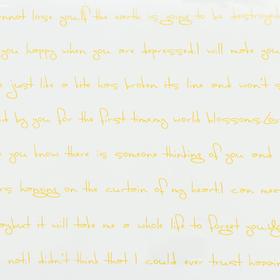 nnot lose you.If the earth is going to be destroyed
you happy when you are depressed.I will make you
just like a kite has broken its line and won't s
it by you for the first time.my world blossoms.Lov
you know there is someone thinking of you and
rs hanging on the curtain of my heart.I can mee
aybe it will take me a whole life to forget you.
not.I didn't think that I could ever trust happin